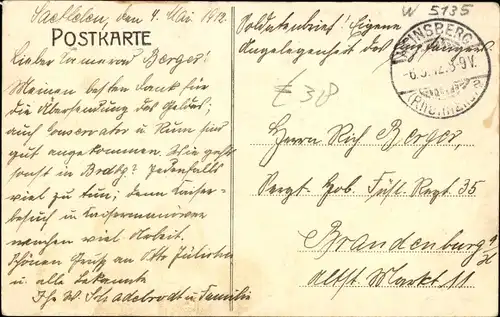 W 5135
Saethlen, den 4. Mai 1912.
POSTKARTE
Lieber Kamerad Berger!
Meinen besten Dank für
die Übersendung des Geldes;
auch Conservator u Rum sind
gut angekommen. Wie geht's
sonst in Brdbg? Jedenfalls
viel zu tun; denn Kaiser-
besuch u Kaisermanöver
machen viel Arbeit.
Schönen Gruß an Otto
u alle Bekannte
Ihr W. Schadebrodt u Familie
Soldatenbrief! Eigene
Angelegenheit des Empfängers
RHEINSBERG
-6.5.12.8-9V.
(RHEINSBG)
£ 38
Herrn Rich Berger,
Sergt- Hob. Füsl. Regt. 35
Brandenburg a/H
Altst. Markt 11